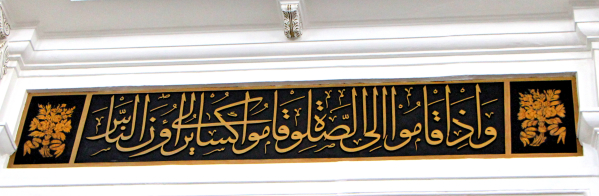 وَإِذَا قَامُوا إِلَى الصَّلٰوةِ قَامُوا كُسَالَىٰ يُرَاؤُنَ النَّاسَ